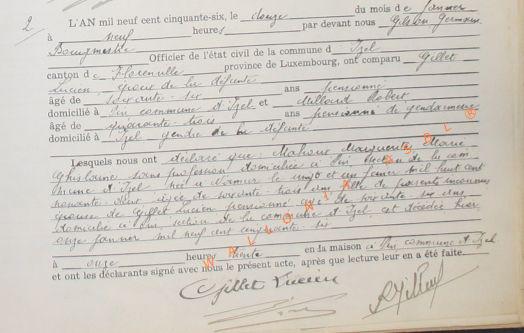 2
L'AN mil neuf cent cinquante-six, le douze du mois de janvier
à neuf heures, par devant nous Gilson Germain
Bourgmestre
Officier de l'état civil de la commune d'Izel
canton de Florenville province de Luxembourg, ont comparu Gillet
Lucien, époux de la défunte
âgé de soixante-six ans pensionné
domicilié à Pin commune d'Izel et Robert
âgé de quarante-trois ans pensionné de gendarmerie
domicilié à Izel gendre de la défunte
Lesquels nous ont déclaré que Mahoux Marguerite Marie
Ghislaine sans profession domiciliée à Pin section de la com
mune d'Izel née à Namur le vingt et un janvier mil huit cent
nonante-deux âgée de soixante-trois ans fille de parents inconnus
épouse de Gillet Lucien pensionné âgé de soixante-six ans
domicilié à Pin, section de la commune d'Izel, est décédée hier
onze janvier mil neuf cent cinquante-six
à onze heures trente en la maison à Pin commune d'Izel
et ont les déclarants signé avec nous le présent acte, après que lecture leur en a été faite.
Gillet Lucien